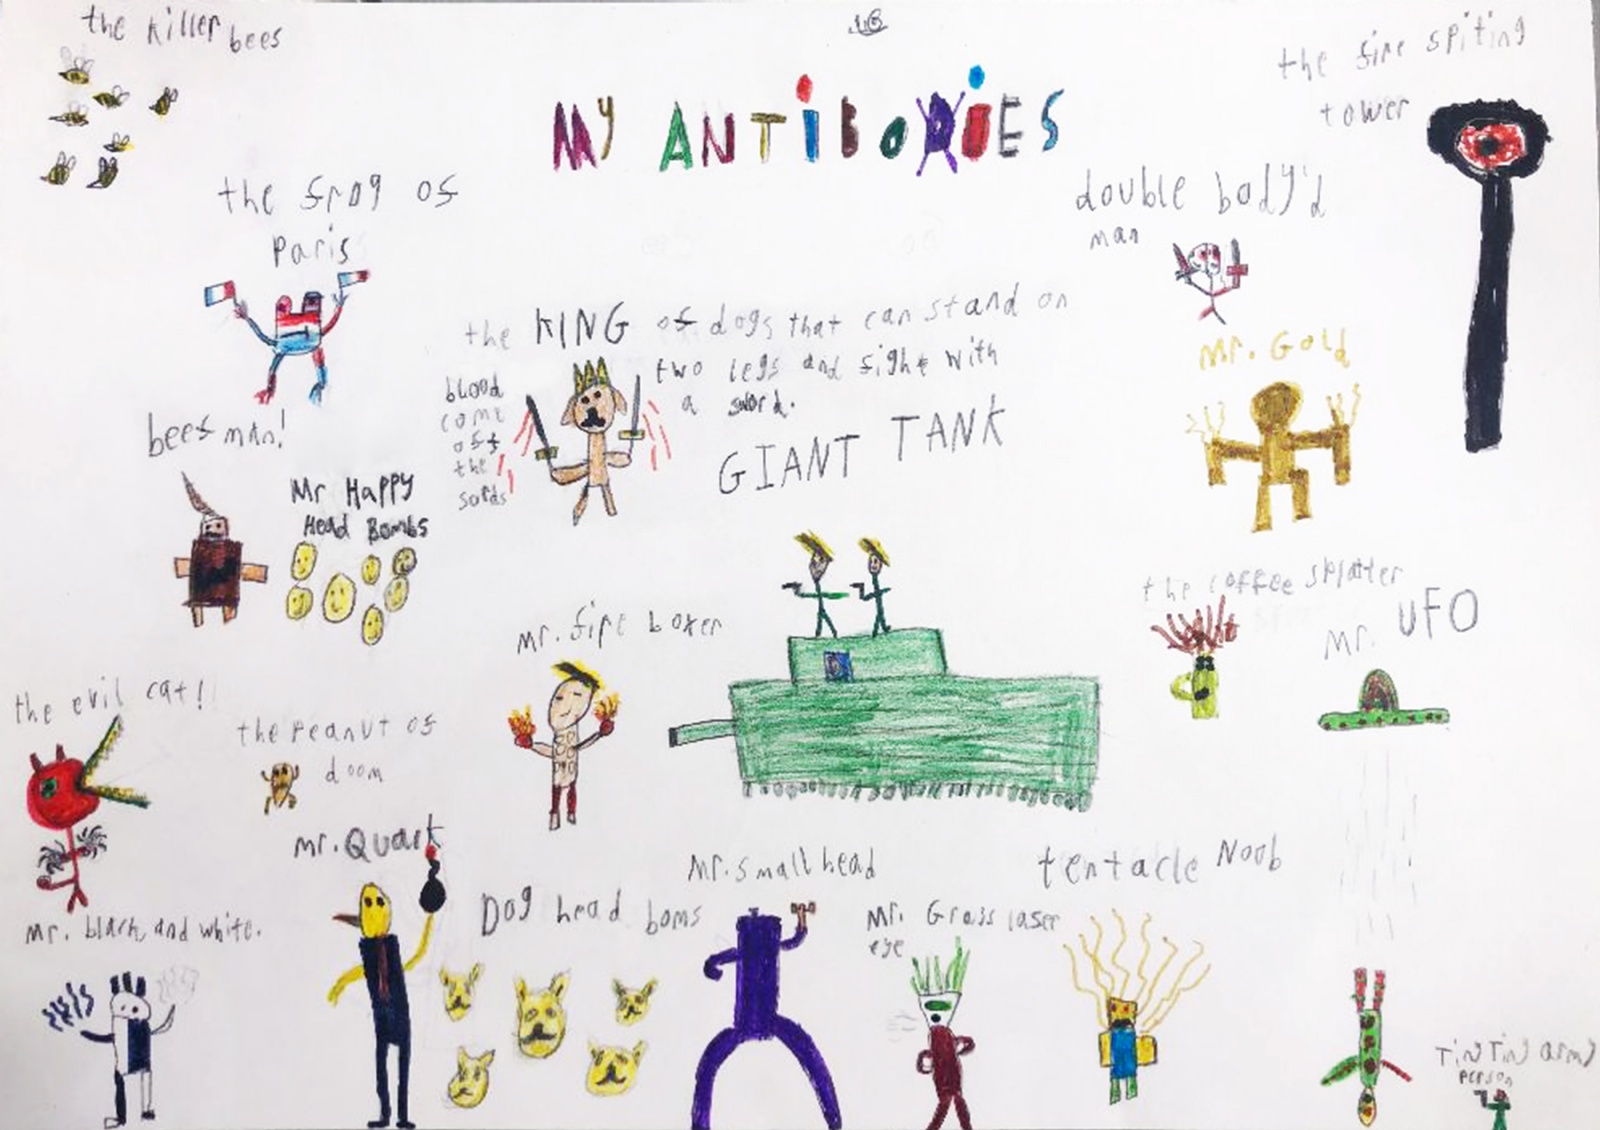 the killer bees
MY ANTIBODIES
the fire spiting
tower
the frog of
Paris
double body'd
man
the KING of dogs that can stand on
two legs and fight with
a sword.
blood
come
off
the
sords
Mr. Gold
beef man!
GIANT TANK
Mr Happy
Head Bombs
the coffee splatter
mr. UFO
mr. fire boxer
the evil cat!
the Peanut of
doom
mr. Quark
Mr. small head
tentacle Noob
Dog head boms
Mr. Grass laser
eye
mr. black and white.
Ting Ting army
person